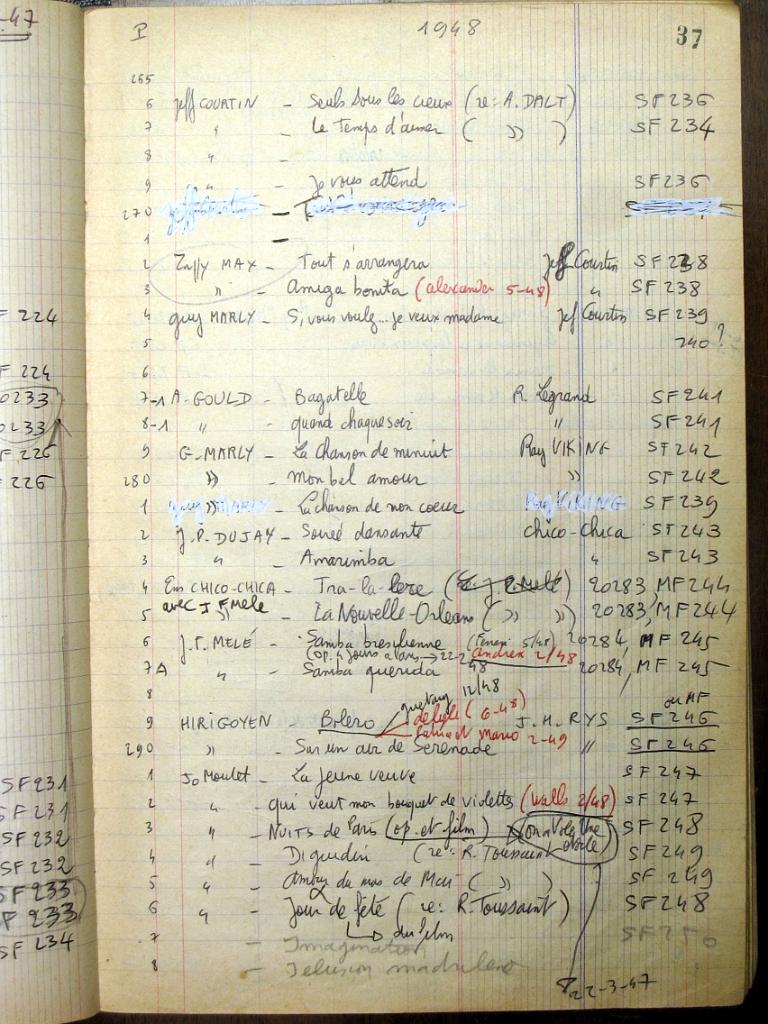 -47
P 1948 37
265
6 Jeff COURTIN - Seuls sous les cieux (re: A. DALT) SF 236
7 " Le Temps d'aimer ( " ) SF 234
8 " -
9 " - Je vous attend SF 236
270 -
1 -
2 Zappy MAX - Tout s'arrangera Jeff Courtin SF 238
3 " - Amiga bonita (alexander 5-48) " SF 238
4 guy MARLY - Si vous voulez... je veux madame Jef Courtin SF 239
5 240 ?
6
7-1 A. GOULD - Bagatelle R. Legrand SF 241
8-1 " - quand chaque soir " SF 241
9 G. MARLY - La Chanson de minuit Ray VIKING SF 242
280 " - mon bel amour " SF 242
1 guy MARLY - La chanson de mon coeur Ray VIKING SF 239
2 J.P. DUJAY - Soireé dansante chico-chica SF 243
3 " - Amarimba " SF 243
4 Ens CHICO-CHICA - Tra-la-lere ( ) 20283, MF 244
avec J F Mele
5 " - La Nouvelle-Orleans ( " " ) 20283, MF 244
6 J.F. MELÉ - Samba bresilienne (Ferrari 5/48) 20284, MF 245
andrex 2/48
7A " - Samba querida 48 20284, MF 245
8 12/48
9 HIRIGOYEN - Bolero (6-48) J.H. RYS SF 246
ou MF
mario 2-49
290 " - Sur un air de Serenade " SF 246
1 Jo Moulet - La jeune veuve SF 247
2 " - qui veut mon bouquet de violettes (Walls 2/48) SF 247
3 " - NUITS de Paris (op. et film) on a volé une etoile SF 248
4 " - Digudin (re: R. Toussaint SF 249
5 " - Amour du mas de Mau ( " ) SF 249
6 " - Jour de fête (re: R. Toussaint) SF 248
↳ du film
7 - Imagination SF 250
8 - Ilusion madrileno
22-3-47
F 224
F 224
0233
0233
F 226
226
SF 231
SF 231
SF 232
SF 232
SF 233
SF 233
SF 234